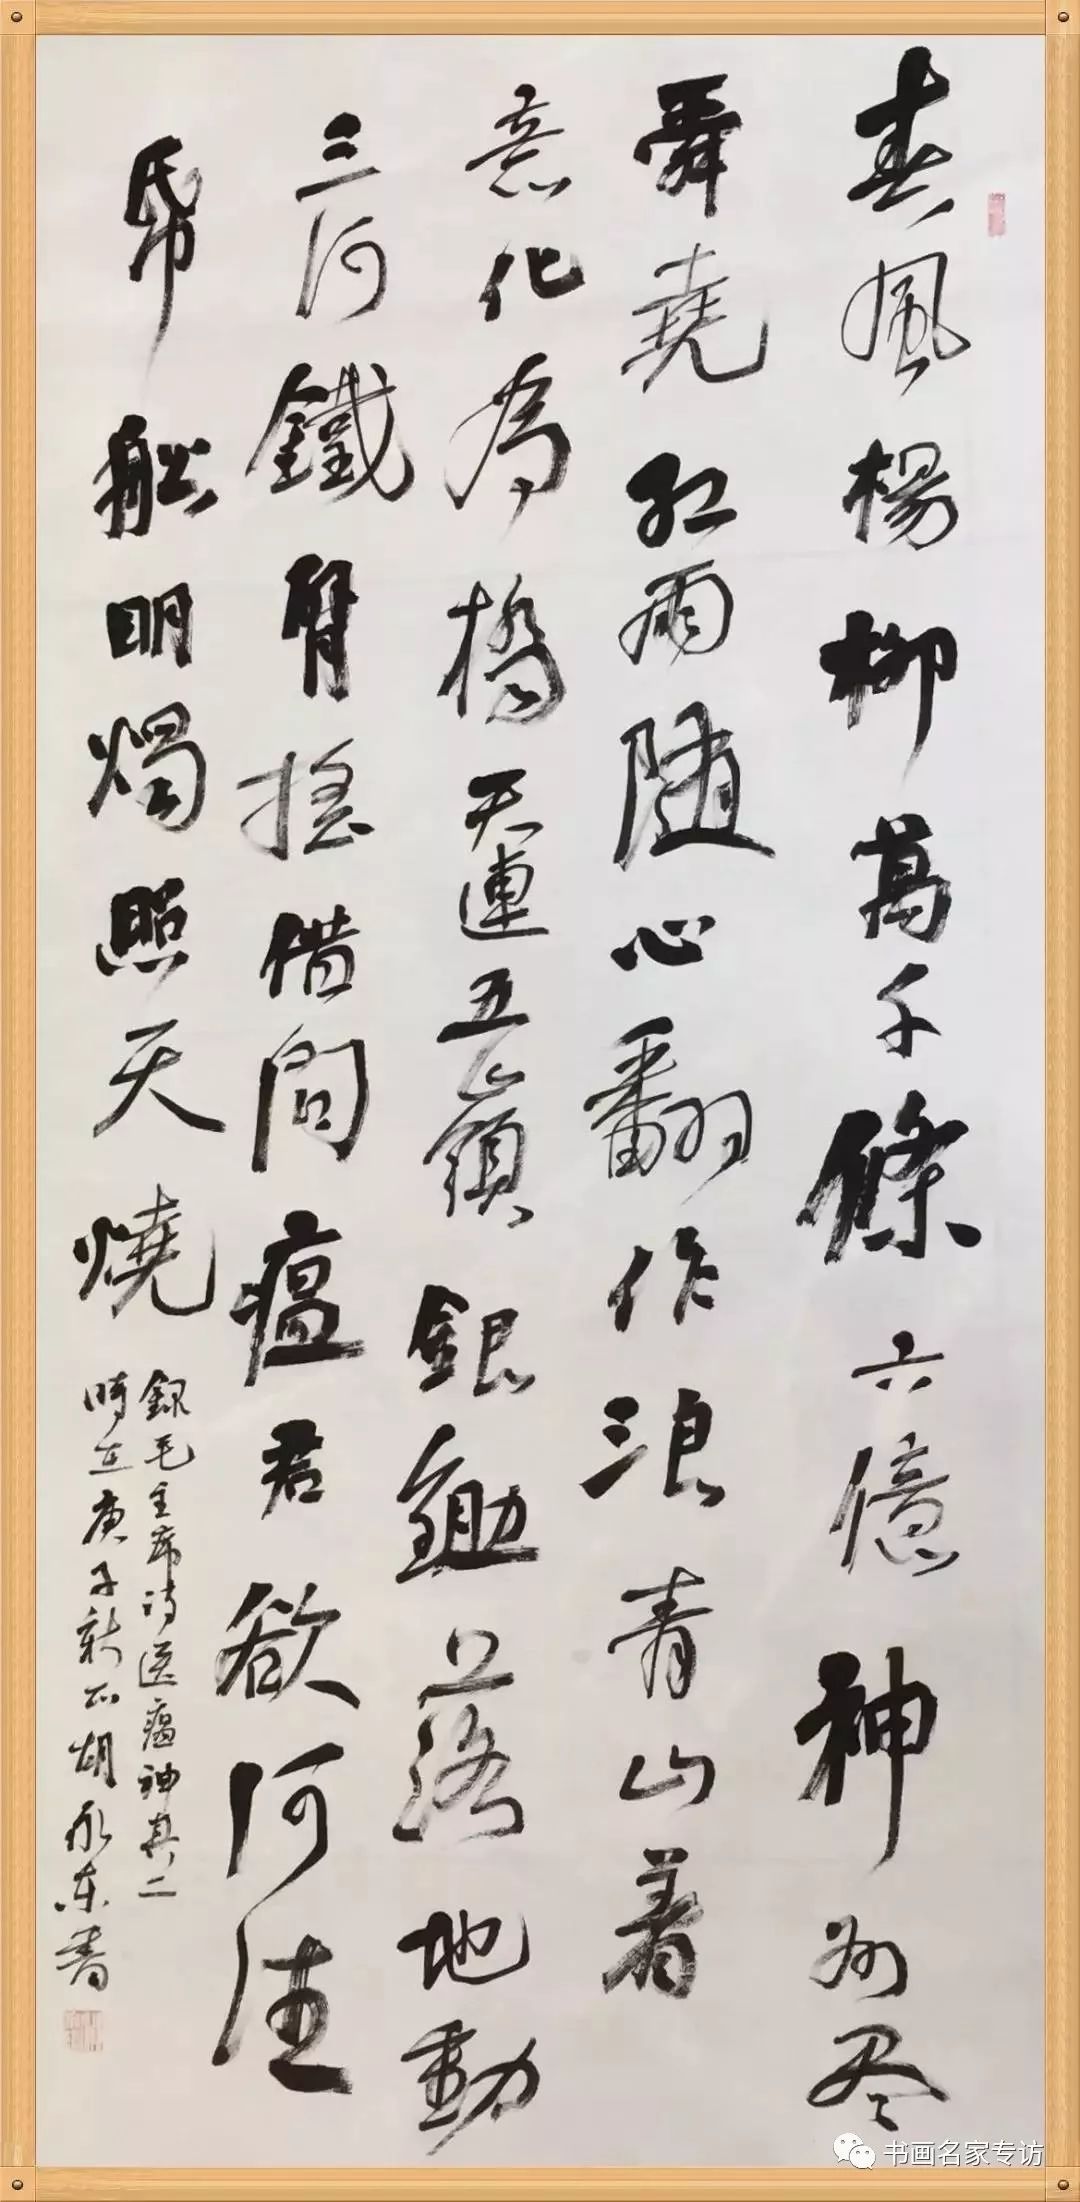 春風楊柳萬千條六億神州尽
舜堯红雨随心翻作浪青山着
意化为橋天連五嶺銀鋤落地動
三河鐵臂摇借问瘟君欲何往
帋船明燭照天燒
録毛主席诗送瘟神其二
時在庚子新正胡永东書
书画名家专访